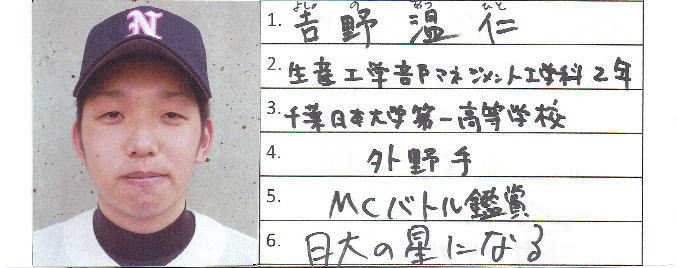 N
よしの あつひと
1. 吉野 温仁
2. 生産工学部マネジメント工学科2年
3. 千葉日本大学第一高等学校
4. 外野手
5. MCバトル鑑賞
6. 日大の星になる